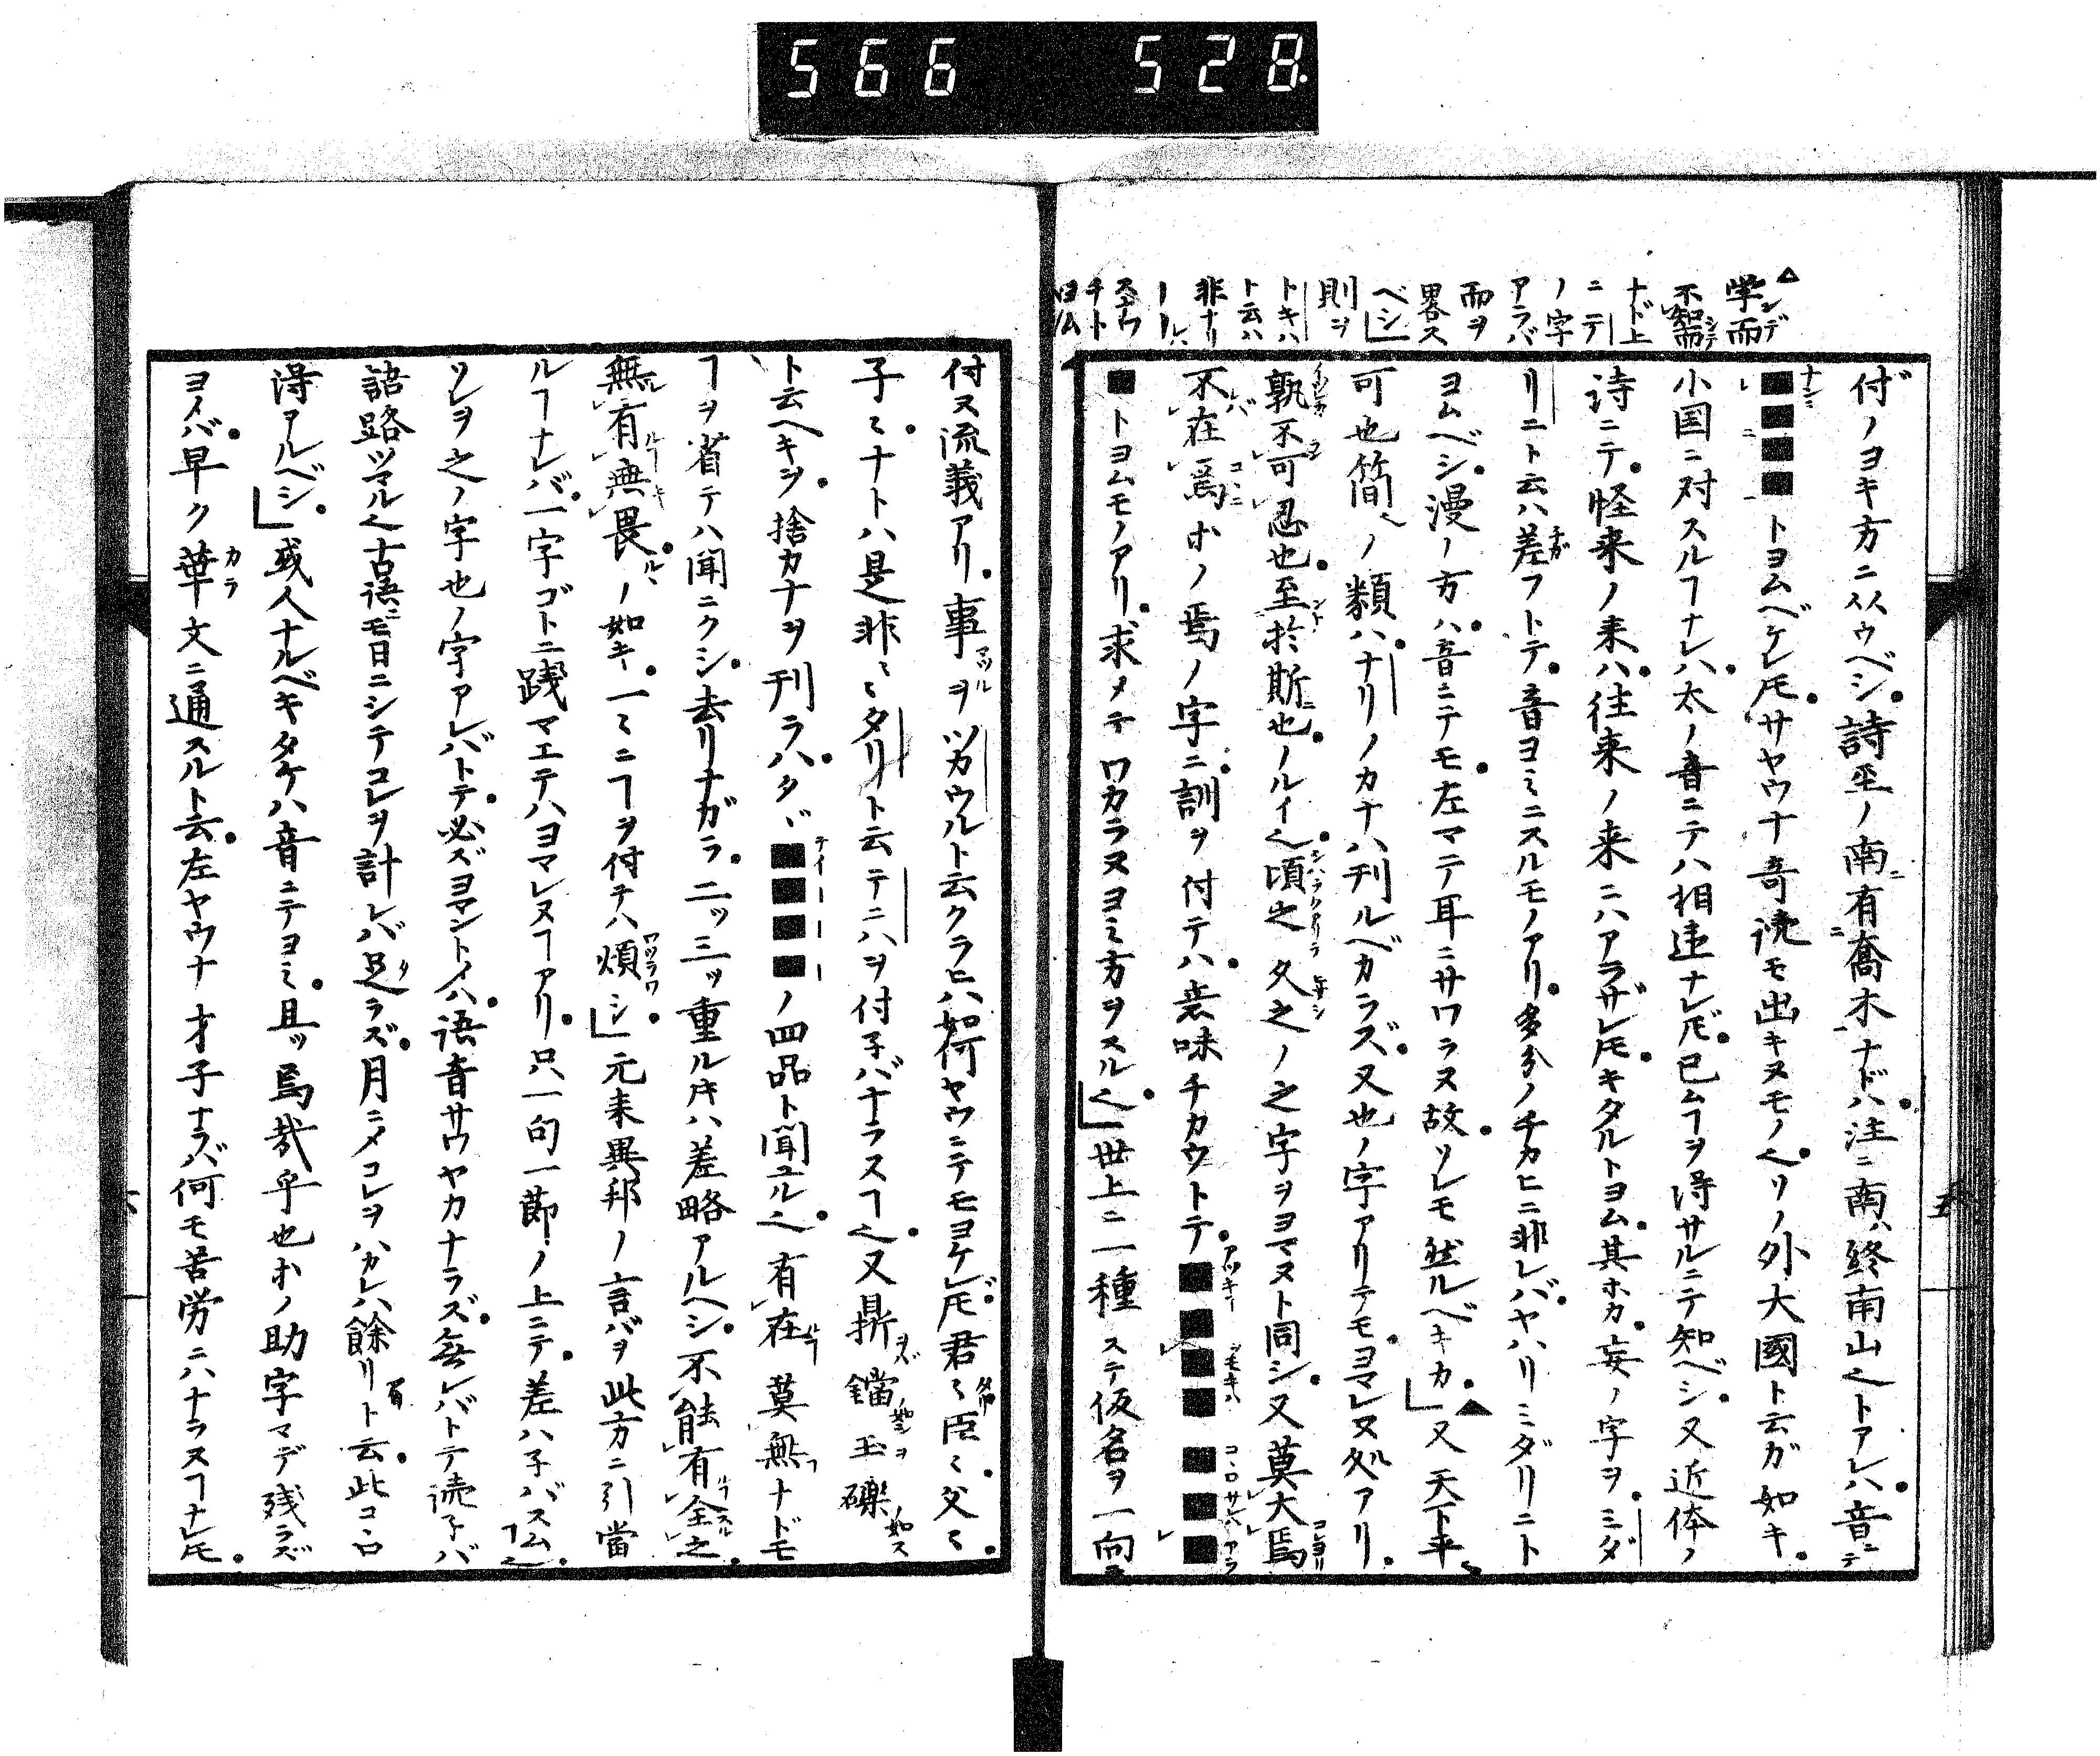 566 528
△学ンデ而
不知シテ而
ナド上
ニテ
ノ字
アラバ
而ヲ
畧ス
ベシ」
則ヲ
トキハ
ト云ハ
非ナリ
付ノヨキ方ニ从ウベシ詩巠ノ南ニ有喬木ナドハ注ニ南ハ終南山也トアレハ音ニテ
■■■■トヨムベケレ𪜈サヤウナ奇読モ出キヌモノ也ソノ外大國ト云ガ如キ
小国ニ対スルヿナレハ太ノ音ニテハ相違ナレ𪜈已ムヿヲ得サルニテ知ベシ又近体ノ
詩ニテ怪来ノ来ハ往来ノ来ニハアラザレ𪜈キタルトヨム其ホカ妄ノ字ヲミダ
リニト云ハ差フトテ音ヨミニスルモノアリ多分ノチカヒニ非レバヤハリミダリニト
ヨムベシ漫ノ方ハ音ニテモ左マテ耳ニサワラヌ故ソレモ然ルベキカ」▲又天下平
可也簡也ノ類ハナリノカナハ刊ルベカラズ又也ノ字アリテモヨマレヌ処アリ
孰不可忍也至於斯也ノルイ也頃之久之ノ之字ヲヨマヌト同シ又莫大焉
不在焉ホノ焉ノ字ニ訓ヲ付テハ意味チカウトテ■■■■■■■
■トヨムモノアリ求メテワカラヌヨミ方ヲスル也」世上ニ一種ステ仮名ヲ一向ニ
付ヌ流義アリ事ヲツカウルト云クラヒハ如何ヤウニテモヨケレ𪜈君ミ臣ミ父ミ
子ミナトハ是非ミタリト云テニハヲ付子バナラスヿ也又鼎鐺玉礫
ト云ヘキヲ捨カナヲ刊ラハタヾ■■■■ノ四品ト聞ユル也有在莫無ナドモ
ヿヲ省テハ聞ニクシ去リナガラ二ッ三ッ重ル𪜈ハ差略アルヘシ不能有全之
無有無畏ノ如キ一ミニヿヲ付テハ煩シ」元来異邦ノ言バヲ此方ニ引當
ルヿナレバ一字ゴトニ踐マエテハヨマレヌヿアリ只一句一節ノ上ニテ差ハ子バスムヿ也
ソレヲ之ノ字也ノ字アレバトテ必ズヨマントイハ語音サワヤカナラズ無レバトテ読子バ
語路ツマル也古語ニモ日ニシテコレヲ計レバ足ラズ月ニメコレヲハカレハ餘リ有ト云此コヽロ
得アルベシ」或人ナルベキタケハ音ニテヨミ且ッ焉哉乎也ホノ助字マデ残ラズ
ヨメバ早ク華文ニ通スルト云左ヤウナ才子ナラバ何モ苦労ニハナラスヿナレ𪜈